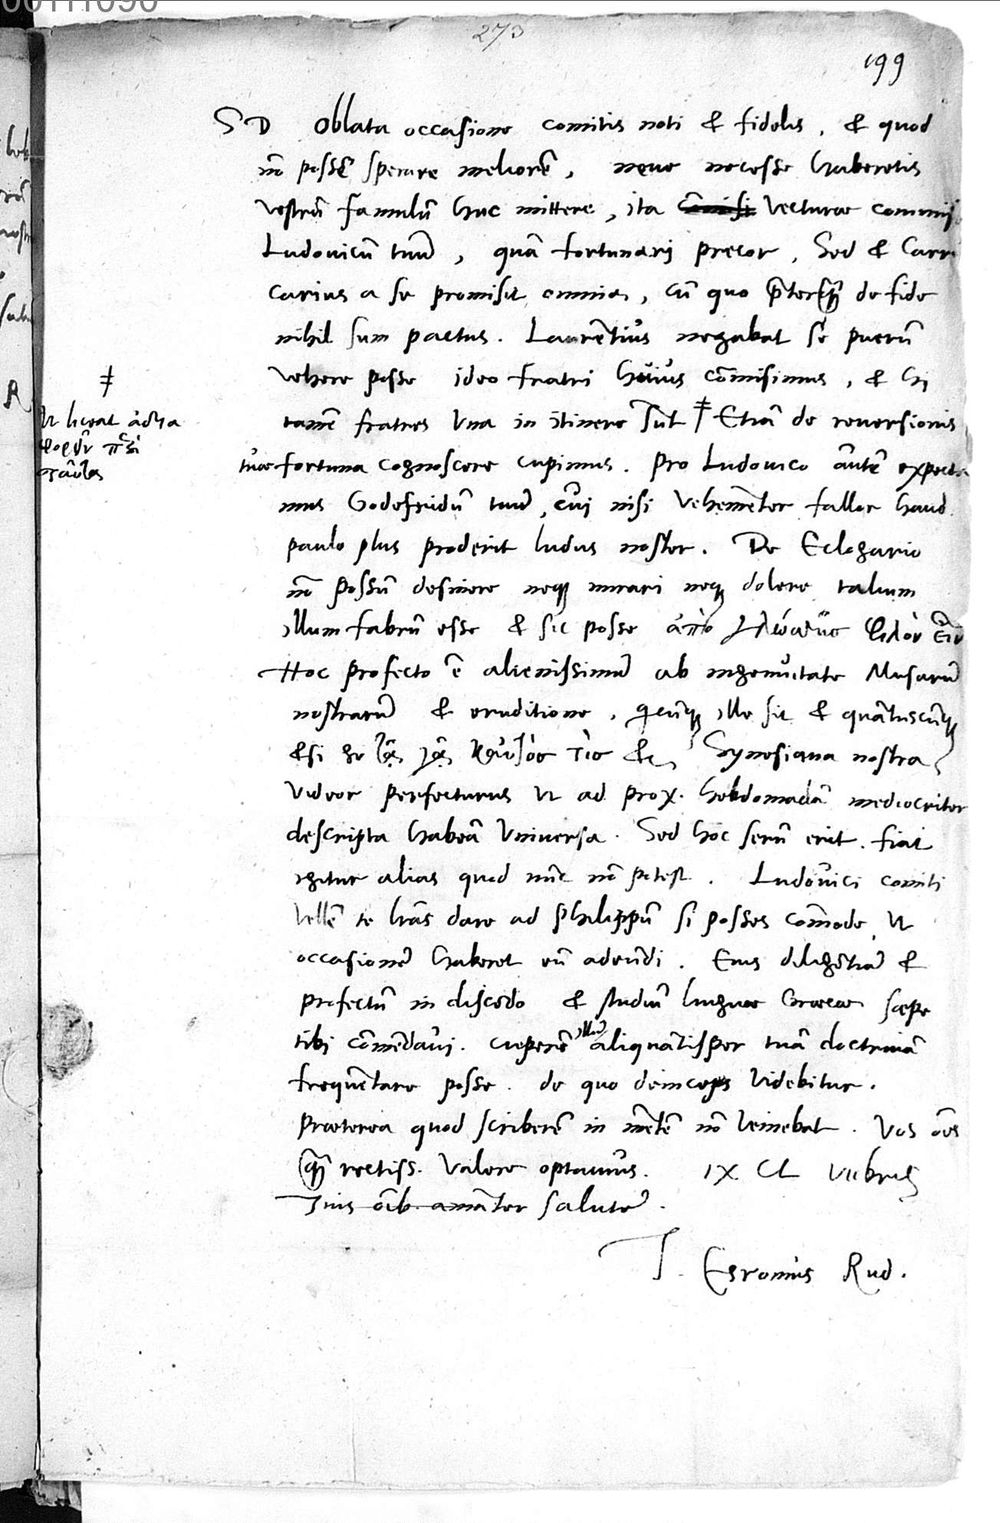 273
199
S D Oblata occasione comitis noti & fidelis, & quod
nō possē sperare meliorē, neue necesse haberetis
vestrū famulū huc mittere, ita cōmisi vecturae commisi
Ludouicū tuū, quā fortunari precor, Sed & Carri
carius a se promisit omnia, cū quo p̄terq̄ de fide
nihil sum pactus. Laurētius negabat sē puerū
vehere posse ideo fratri huius cōmisimus, & hi
tamē fratres una in itinere sūt ‡ Etiā de reuersionis
‡
ut liceat
tuae fortuna cognoscere cupimus. Pro Ludouico autē expecta
mus Godefridū tuū, cui nisi vehemēter fallor haud
paulo plus proderit ludus noster. De Eclogario
nō possū desinere neq; mirari neq; dolere talium
illum fabrū esse & sic posse ἀπὸ γλώσσης φίλον εἶν
Hoc profecto ē alienissimū ab ingenuitate Musarū
nostrarū & eruditione, qcūq; ille sit & quātuscūq;
&si τις &c Synesiana nostra
videor perfecturus ut ad prox. hebdomadā mediocriter
descripta habeā vniuersa. Sed hoc serū erit. fiat
igitur alias quod nūc nō potest. Ludouici comiti
vellē te lrās dare ad Philippū si posses cōmode, ut
occasionē haberet eū adeundi. Eius diligētiā &
profectū in discēdo & studiū linguae Graecae saepe
tibi cōmēdaui. cuperē illū aliquātisper tuā doctrinā
frequētare posse. de quo deinceps videbitur.
Praeterea quod scriberē in mētē nō veniebat. Vos oēs
q̄ rectiss. valere optamus. IX CL VIIbris
Tuis oīb. amāter salutē.
T. Esromus Rud.